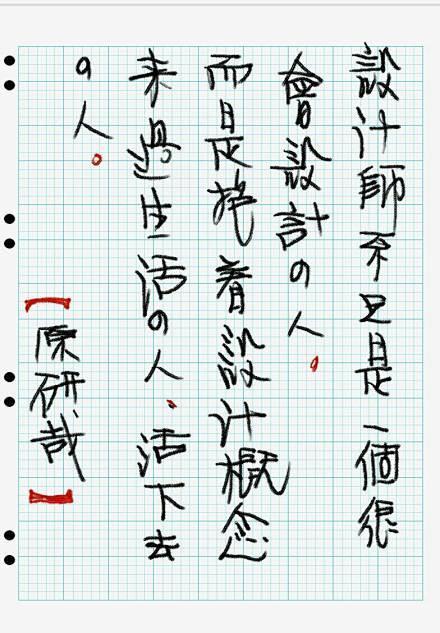 設計師不只是一個很
會設計の人，
而是抱着設计概念
来過生活の人、活下去
の人。
【原研哉】